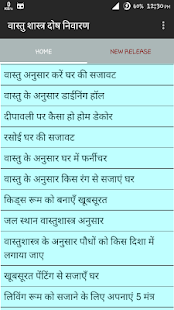 69% 12:30 PM
वास्तु शास्त्र दोष निवारण
HOME NEW RELEASE
वास्तु अनुसार करें घर की सजावट
वास्तु के अनुसार डाईनिंग हॉल
दीपावली पर कैसा हो होम डेकोर
रसोई घर की सजावट
वास्तु के अनुसार घर में फर्नीचर
वास्तु के अनुसार किस रंग से सजाएं घर
किड्स रूम को बनाएँ खूबसूरत
जल स्थान वास्तुशास्त्र अनुसार
वास्तुशास्त्र के अनुसार पौधों को किस दिशा में
लगाया जाए
खूबसूरत पेंटिंग से सजाएँ घर
लिविंग रूम को सजाने के लिए अपनाएं 5 मंत्र